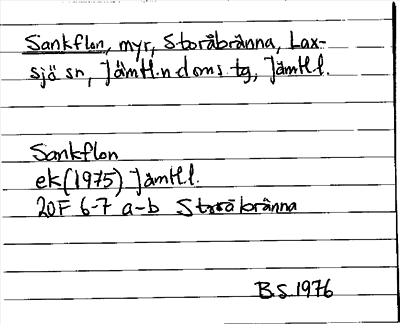 Sankflon, myr, Storåbränna, Lax-
sjö sn, Jämtl.n doms. tg, Jämtl l.
Sankflon
ek (1975) Jämtl l.
20F 6-7 a-b Storåbränna
B.S. 1976